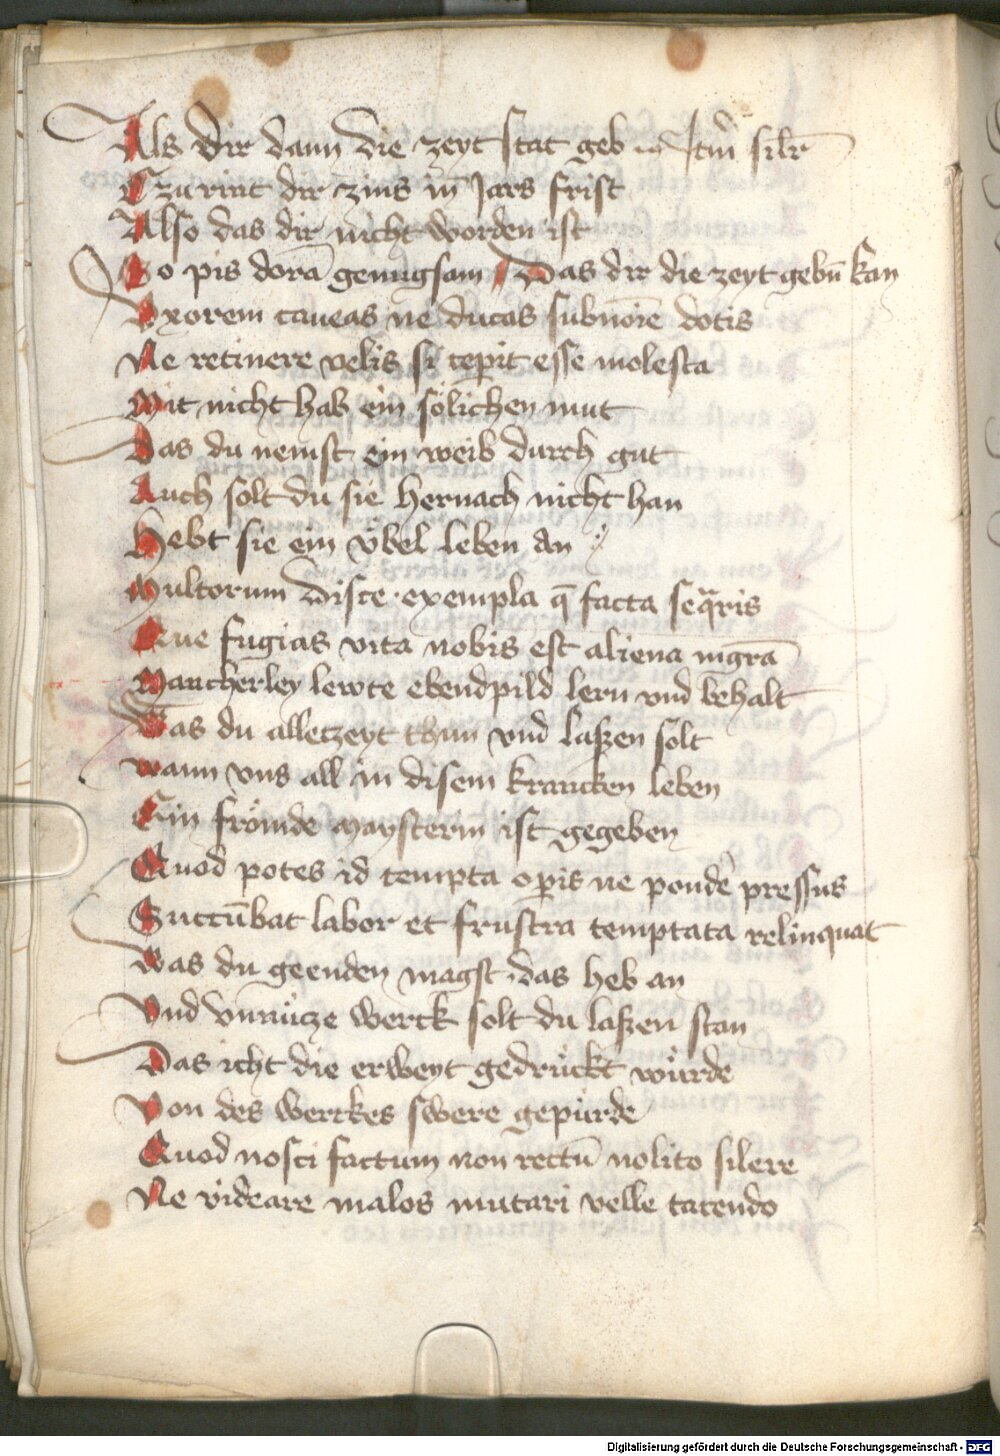 Als dir dann die zeyt stat geb Itm̄ silr̄
Czu rint dir zins in Jars frist
Also das dir nicht worden ist
So pis dorā genugsam Das dir die zeyt gebn̄ kan
Vxorem caueas ne ducas sub noīe dotis
Ne retinere velis si ceperit esse molesta
Mit nicht hab ein sölichen mut
Das du nemst ein weib durch gut
Auch solt du sie hernach nicht han
Hebt sie ein vbel leben an
Multorum disce exempla q̄ facta seqris
Que fugias vita nobis est aliena mgr̄a
Mancherley lewte ebendpild lern vnd behalt
Was du alleczeyt thun vnd laszen solt
wann vns all in disem krancken leben
Ein frömde maysterin ist gegeben
Quod potes id tempta operis ne ponde pressus
Succūbat labor et frustra temptata relinquat
Was du geenden magst das heb an
Vnd vnnücze werck solt du laszen stan
Das icht die erbeyt gedrückt würde
Von des werckes swere gepürde
Quod nosci factum non rectū nolito silere
Ne videare malos mutari velle tacendo
Digitalisierung gefördert durch die Deutsche Forschungsgemeinschaft - DFG